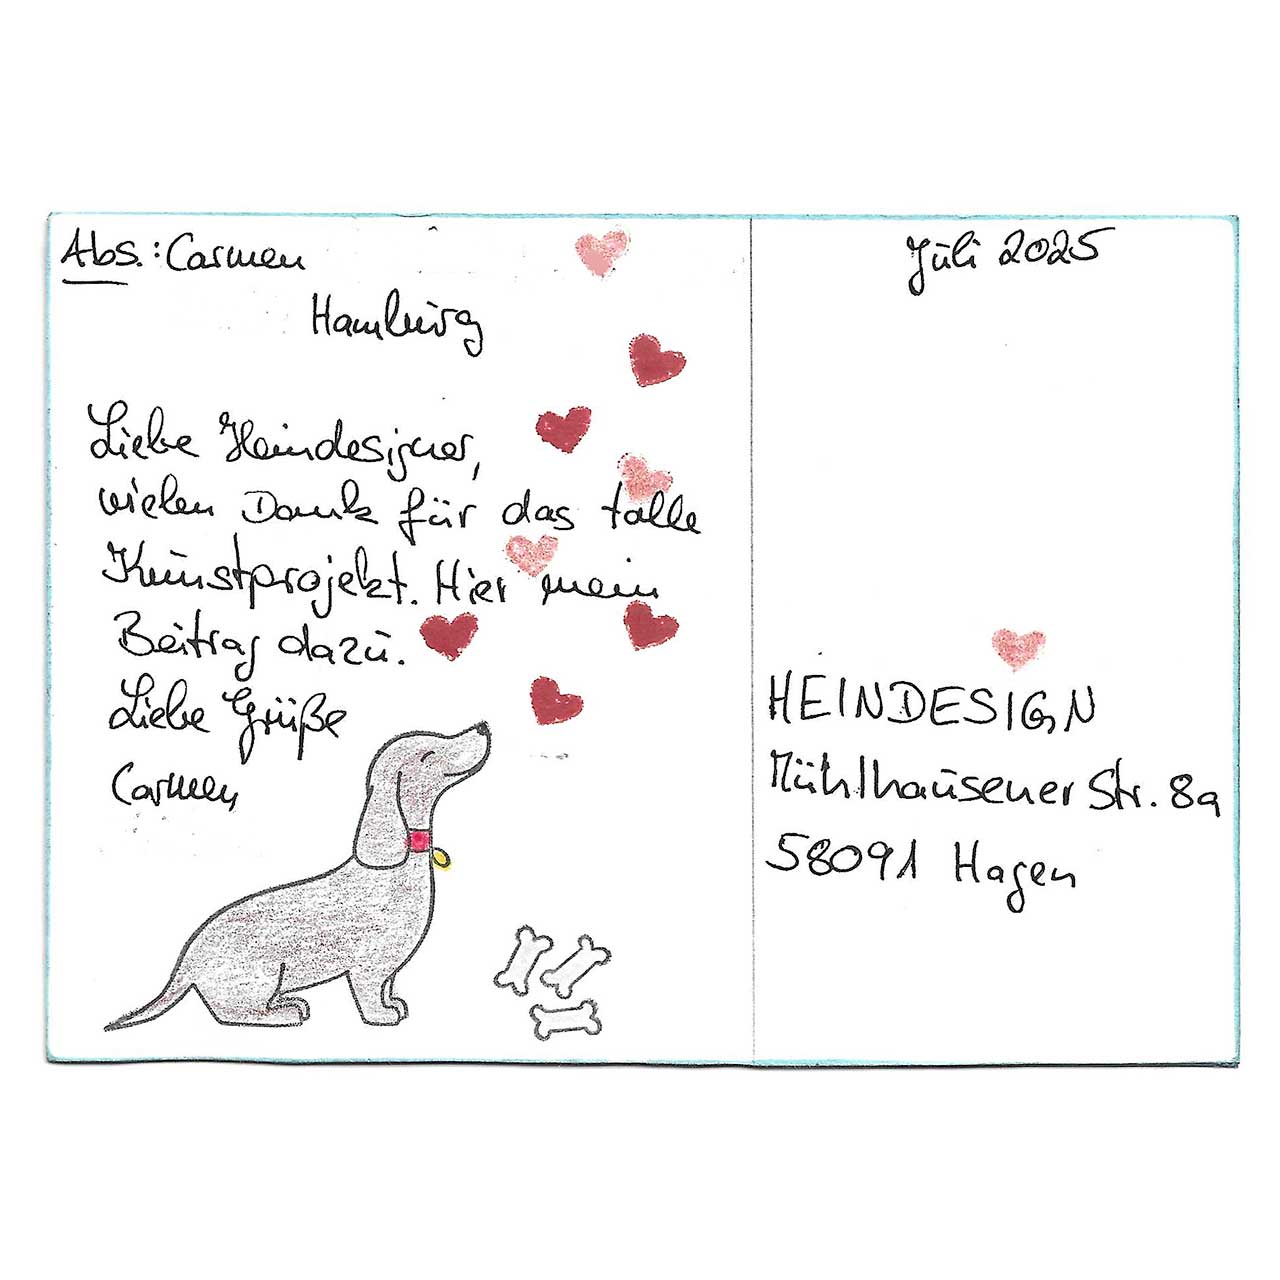 Abs.: Carmen
Hamburg
Liebe Heindesigner,
vielen Dank für das tolle
Kunstprojekt. Hier mein
Beitrag dazu.
Liebe Grüße
Carmen
Juli 2025
HEINDESIGN
Mühlhausener Str. 8a
58091 Hagen